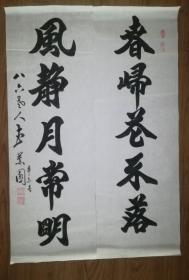 春歸花不落
風静月常明
八六叟人